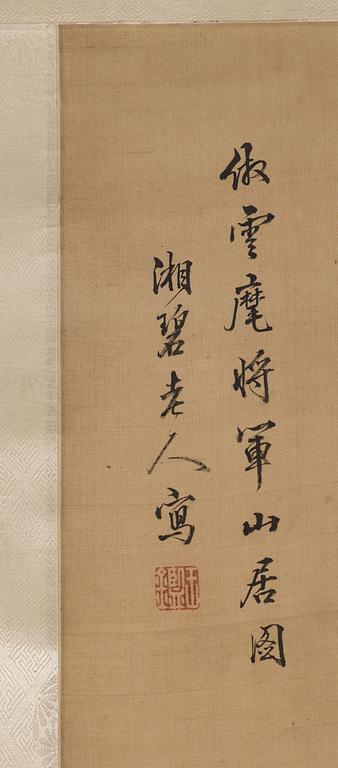 倣雲麾將軍山居图
湘碧老人寫